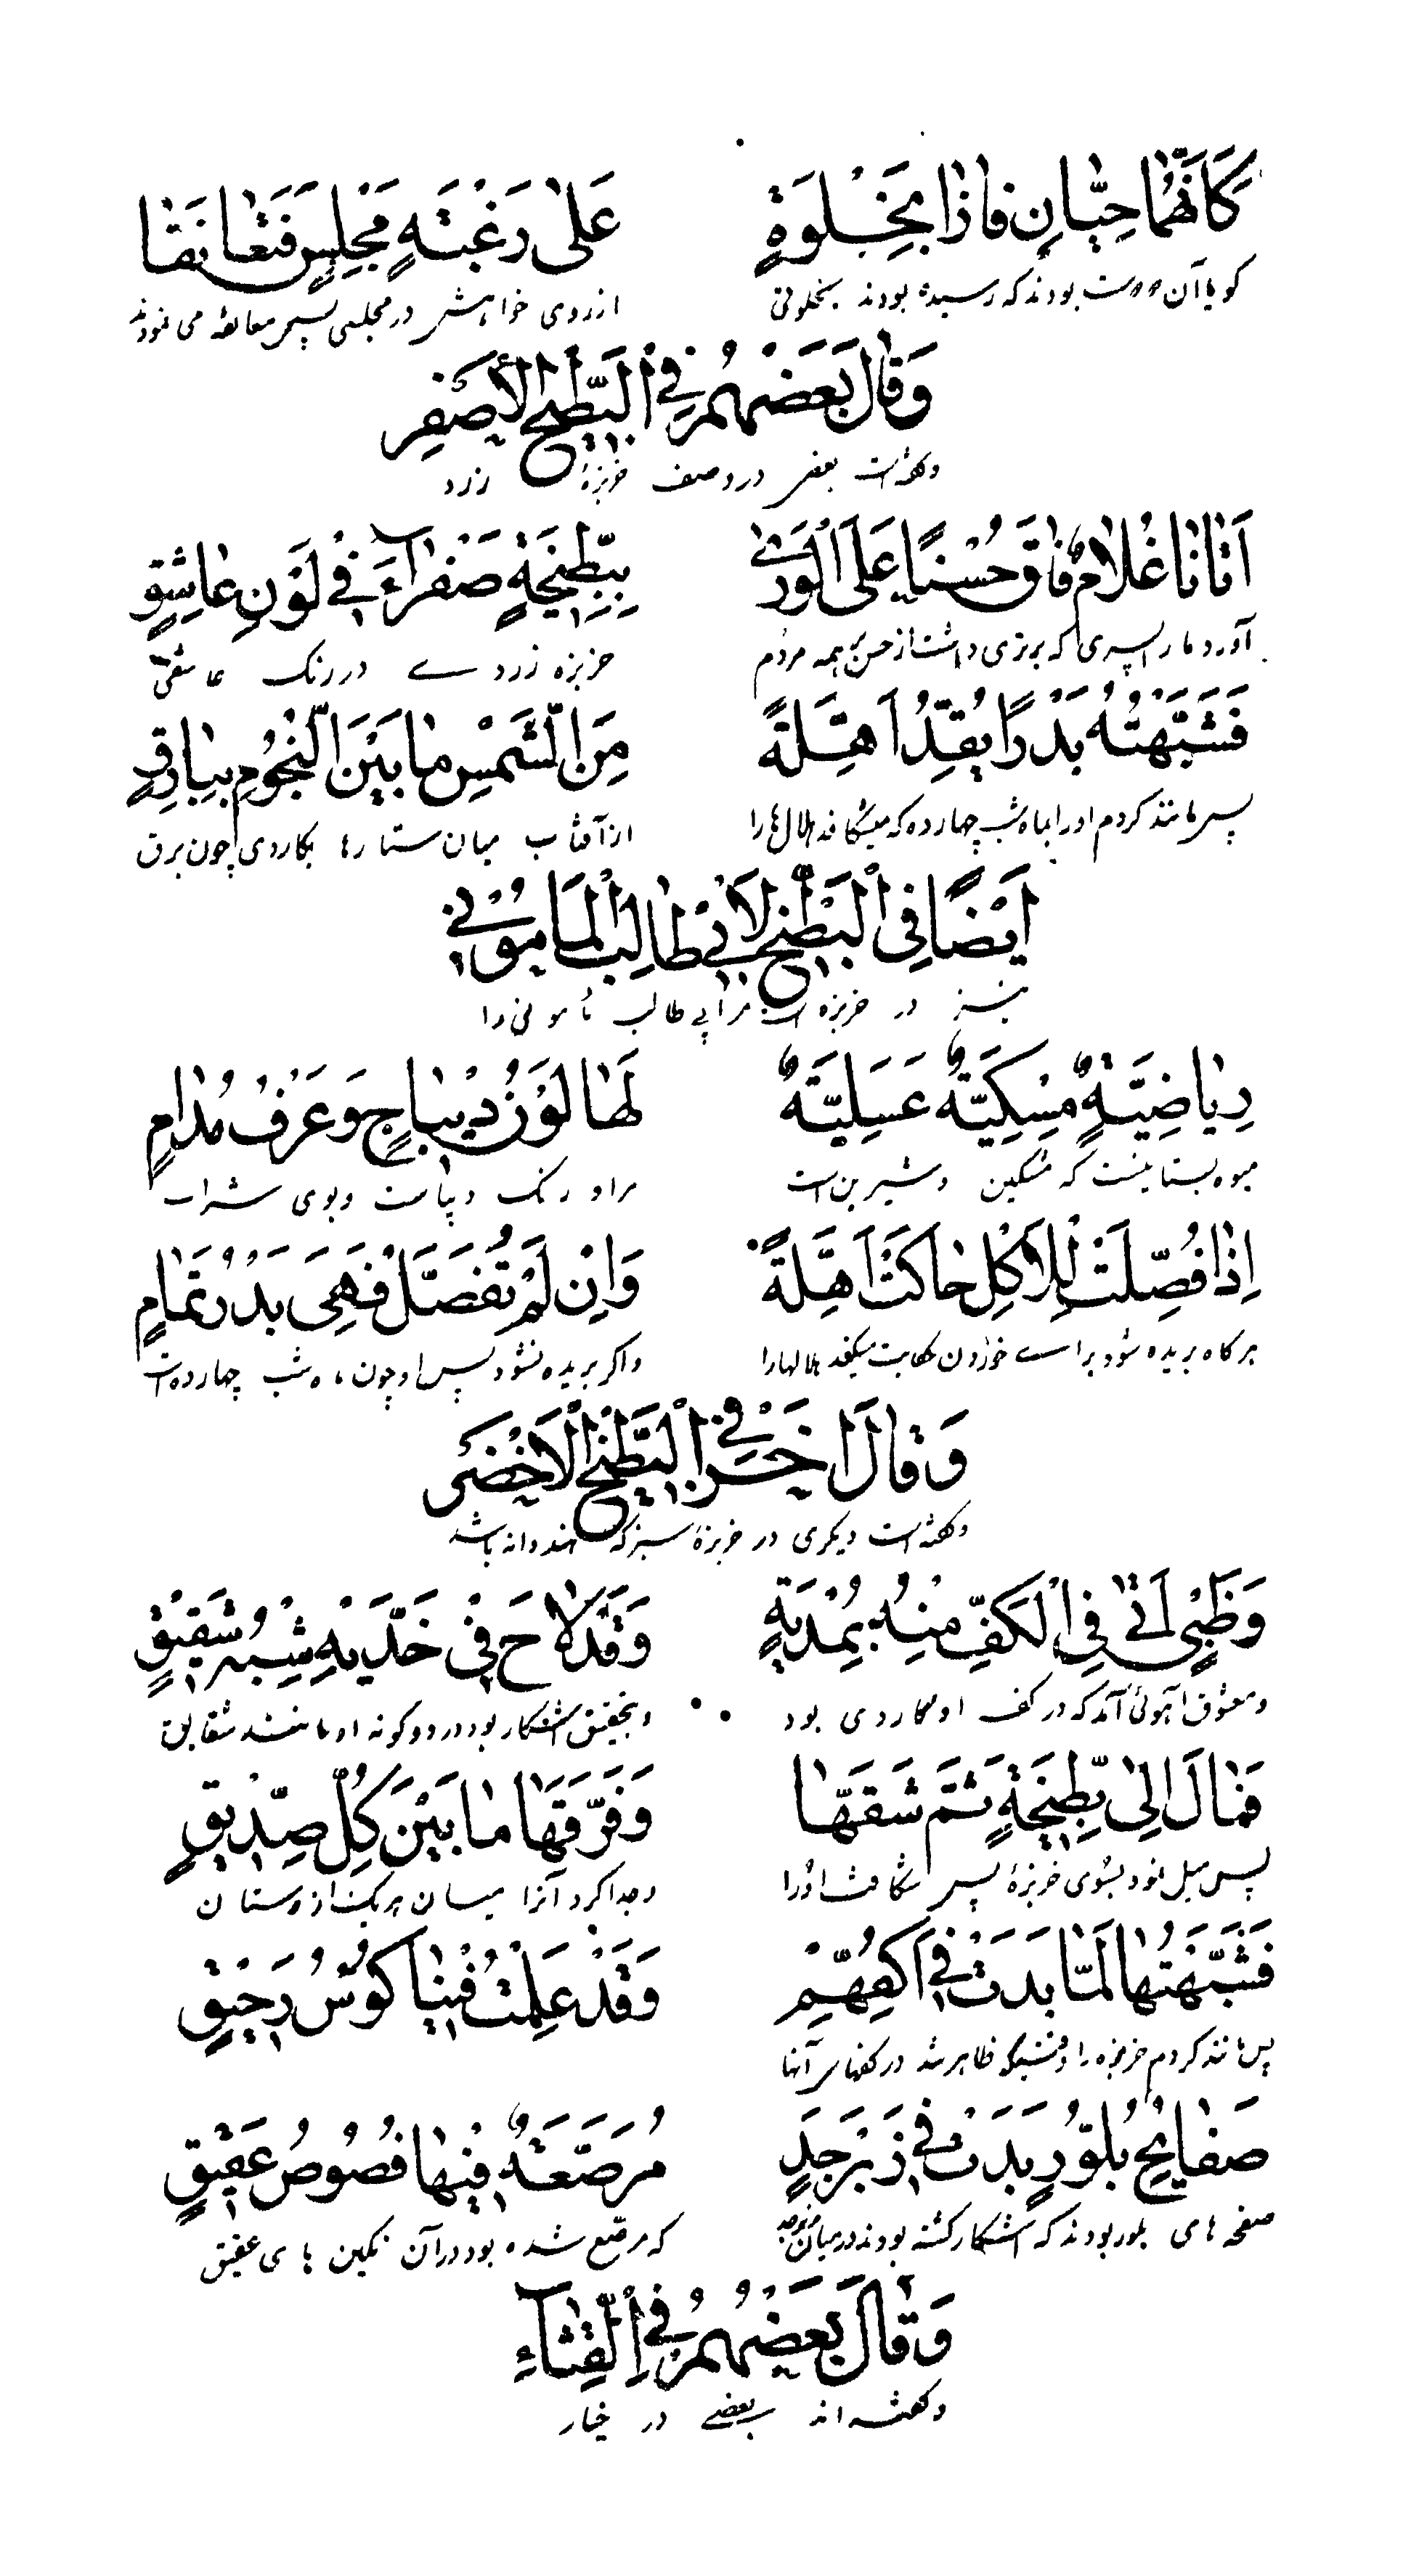 كَاَنَّهُمَا حِبَّانِ فَازَا بِخَلْوَةٍ عَلٰی رَغْبَتِهٍ مَجْلِسٍ فَتَعَانَقَا
کویا آن دوست بودند که رسیده بودند بخلوتی ازروی خواهش در مجلسی پس معانقه می نمودند
وَقَالَ بَعْضُهُمْ فِی الْبِطِّیخِ الْاَصْفَرِ
وکفته است بعضی در وصف خربزهٔ زرد
اَتَانَا غُلَامٌ فَاقَ حُسْنًا عَلَی الْوَرٰی بِبِطِّیخَةٍ صَفْرَآءَ فِی لَوْنِ عَاشِقٍ
آورد ما را پسری که برتری داشت از حسن بر همه مردم خربزه زردے در رنک عاشقی
فَشَبَّهْتُهُ بَدْرًا یُقِدُّ اَهِلَّةً مِنَ الشَّمْسِ مَا بَیْنَ النُّجُومِ بِبَارِقٍ
پس مانند کردم او را بماه شب چهارده که میشکافد هلالها را از آفتاب میان ستارها بکاردی چون برق
اَیْضًا فِی الْبِطِّیخِ لِاَبِی طَالِبِ الْمَامُونِی
نیز در خربزه است مر ابی طالب مامونی را
رِیَاضِیَّةٍ مِسْکِیَّةٌ عَسَلِیَّةٌ لَهَا لَوْنُ دِیبَاجٍ وَعَرْفُ مُدَامٍ
میوه بستانیست که مشکین و شیرین است مر او رنک دیباست و بوی شراب
اِذَا فُصِّلَتْ لِلْاَکْلِ حَاکَتْ اَهِلَّةً وَاِنْ لَمْ تُفَصَّلْ فَهِیَ بَدْرُ تَمَامٍ
هرکاه بریده شود براے خوردن حکایت میکند هلالها را واکر بریده نشود پس او چون ماه شب چهارده است
وَقَالَ اٰخَرُ فِی الْبِطِّیخِ الْاَخْضَرِ
وکفته است دیکری در خربزهٔ سبز که هندوانه باشد
وَظَبْیٍ اَتٰی فِی الْکَفِّ مِنْهُ بِمُدْیَةٍ وَقَدْ لَاحَ فِی خَدَّیْهِ شِبْهُ شَقِیقٍ
و معشوق آهوئی آمد که در کف او کاردی بود و بتحقیق آشکار بود در دو کونه او مانند شقایق
فَمَالَ اِلٰی بِطِّیخَةٍ ثُمَّ شَقَّهَا وَفَرَّقَهَا مَا بَیْنَ کُلِّ صِدِّیقٍ
پس میل نمود بسوی خربزهٔ پس شکافت او را و جدا کرد آنرا میان هر یک از دوستان
فَشَبَّهْتُهَا لَمَّا بَدَتْ فِی اَکُفِّهِمْ وَقَدْ عَلِمَتْ فِینَا کُؤُسُ رَحِیقٍ
پس مانند کردم خربزه را وقتیکه ظاهر شد در کفهای آنها
صَفَایِحُ بُلُّوْرٍ بَدَتْ فِی زَبَرْجَدٍ مُرَصَّعَةٌ فِیهَا فُصُوصُ عَقِیقٍ
صفحه های بلور بودند که آشکار کشته بودند در میان زبرجد که مرصّع شده بود در آن نکین های عقیق
وَقَالَ بَعْضُهُمْ فِی الْقِثَّآءِ
وکفته اند بعضے در خیار